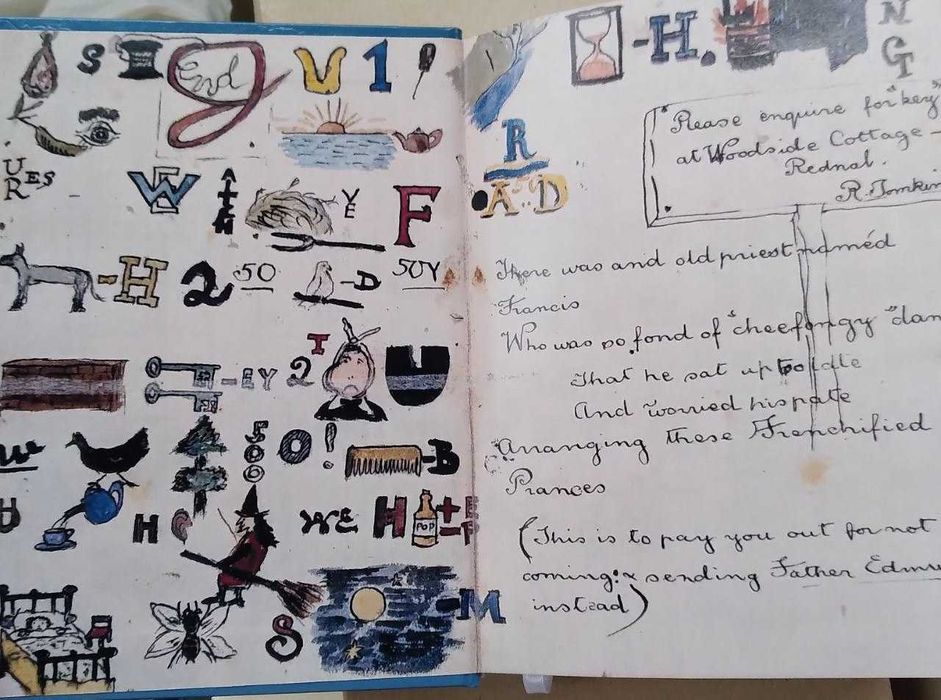 S End g U 1
U
RES W E Y
E F
-H 2 50 -D 50Y
-EY 2 T U
W 500 O! -B
H WE H POP +E
-P
S -M
-H. N
G
R
A D
Please enquire for "key"
at Woodside Cottage -
Rednal.
R. Tomkin
There was and old priest named
Francis
Who was so fond of "cheefongy" dan
That he sat up to late
And worried his pate
Arranging these Frenchified
Prances
(This is to pay you out for not
coming: & sending Father Edmu
instead)